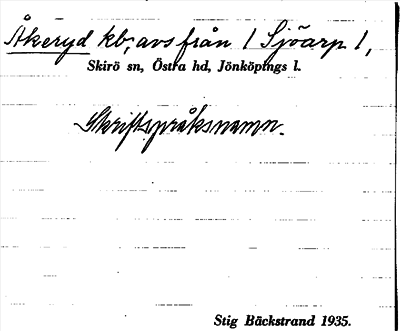 Åkeryd kb, avs från 1 Sjöarp 1,
Skirö sn, Östra hd, Jönköpings l.
Skriftspråksnamn.
Stig Bäckstrand 1935.